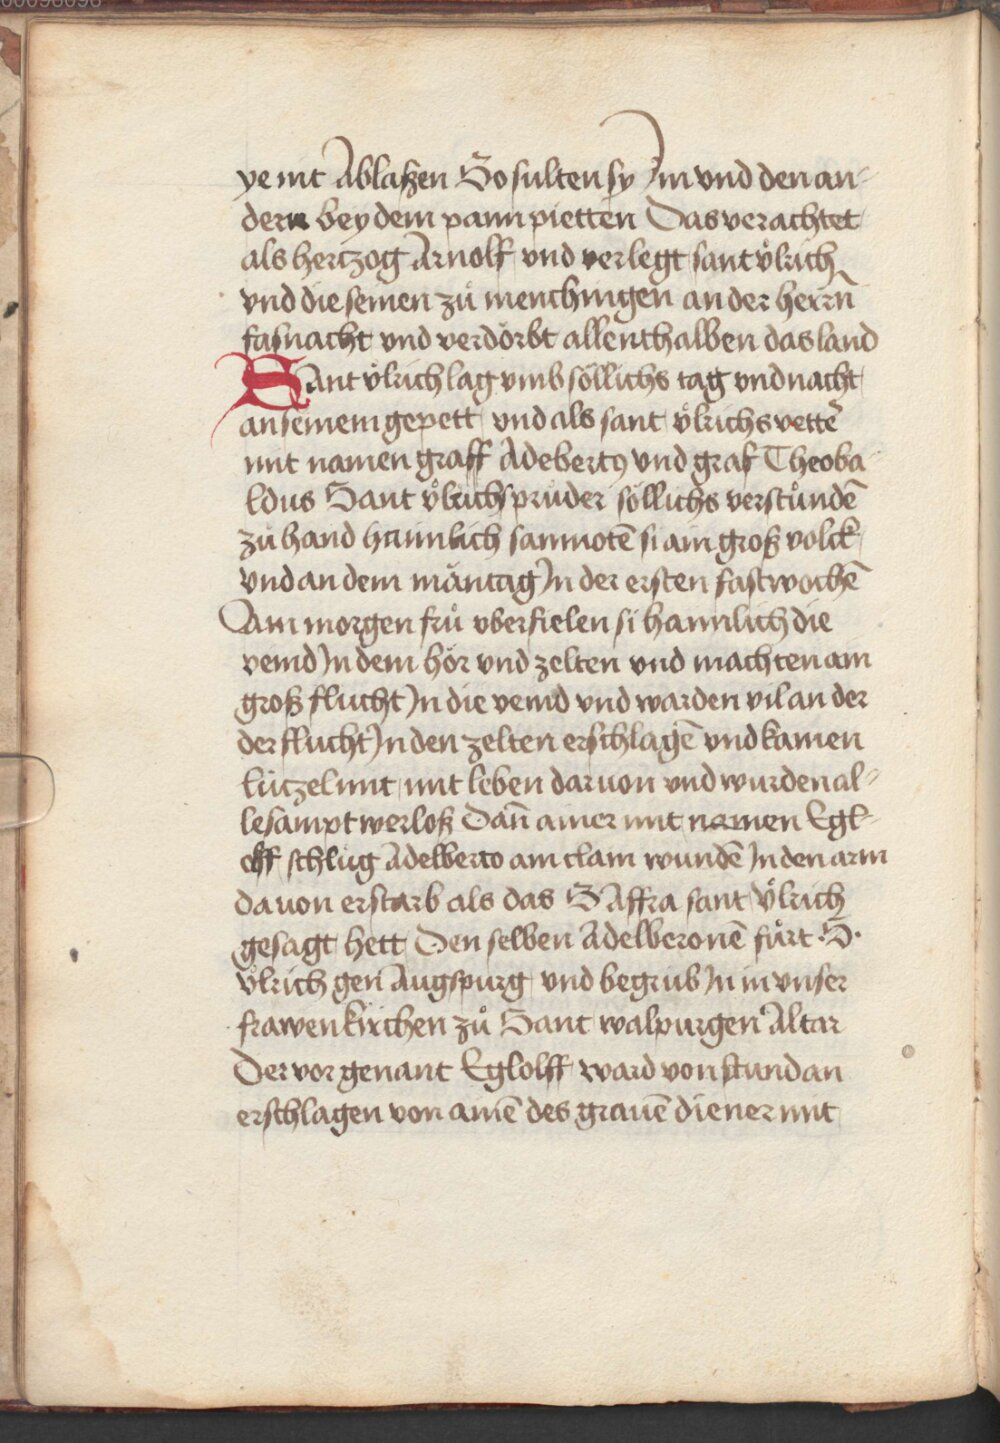 ye nit Ablaßen So sulten sy Jm vnd den an-
dern bey dem pann pietten Das verachtet
als hertzog Arnolf vnd verlegt sant vͦlrich
vnd die seinen zuͦ menchingen an der herrn̄
fasnacht vnd verdorbt allenthalben das land
Sant vͦlrich lag vmb söllichs tag vnd nacht
an seinem gepett vnd als sant vͦlrichs vettē
mit namen graff Adebertꝰ vnd graf Theoba
ldus Sant vͦlrichs pruͦder söllichs verstuͦndē
zuͦ hand haimlich sammotē si ain groß volck
vnd an dem mäntag Jn der ersten fastwochē
Am morgen fruͦ vberfielen si hamlich die
veind Jn dem hör vnd zelten vnd machten ain
groß flucht Jn die veind vnd warden vil an der
der flucht Jn den zelten erschlagē vnd kamen
lützel mit mit leben daruon vnd wurden al-
lesampt werloß Dañ ainer mit namen Egl-
olff schlug Adelberto am clain wundē Jn den arm
dauon erstarb als das S Affra sant vͦlrich
gesagt hett Den selben Adelberonē fuͦrt ·S·
vͦlrich gen Augspurg vnd begrub Jn in vnser
frawen kirchen zuͦ Sant walpurgen Altar
Der vorgenant Eglolff ward von stund an
erschlagen von ainē des grauē diener mit